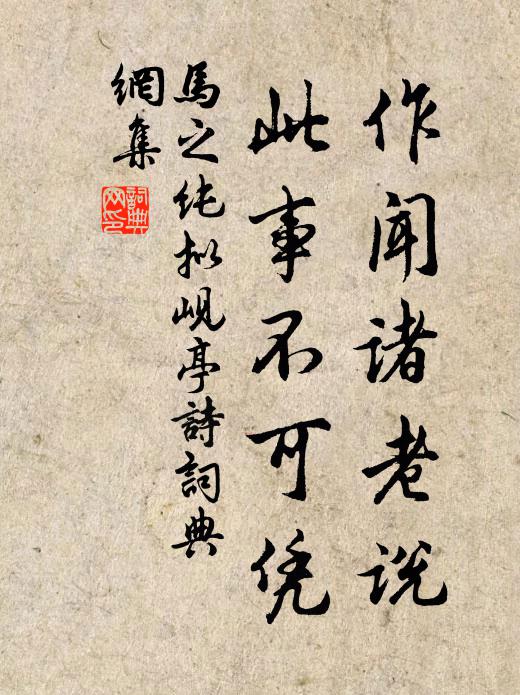 作闻诸老说
此事不可凭
馬之纯拟岘亭詩詞典
網集
詞典網印